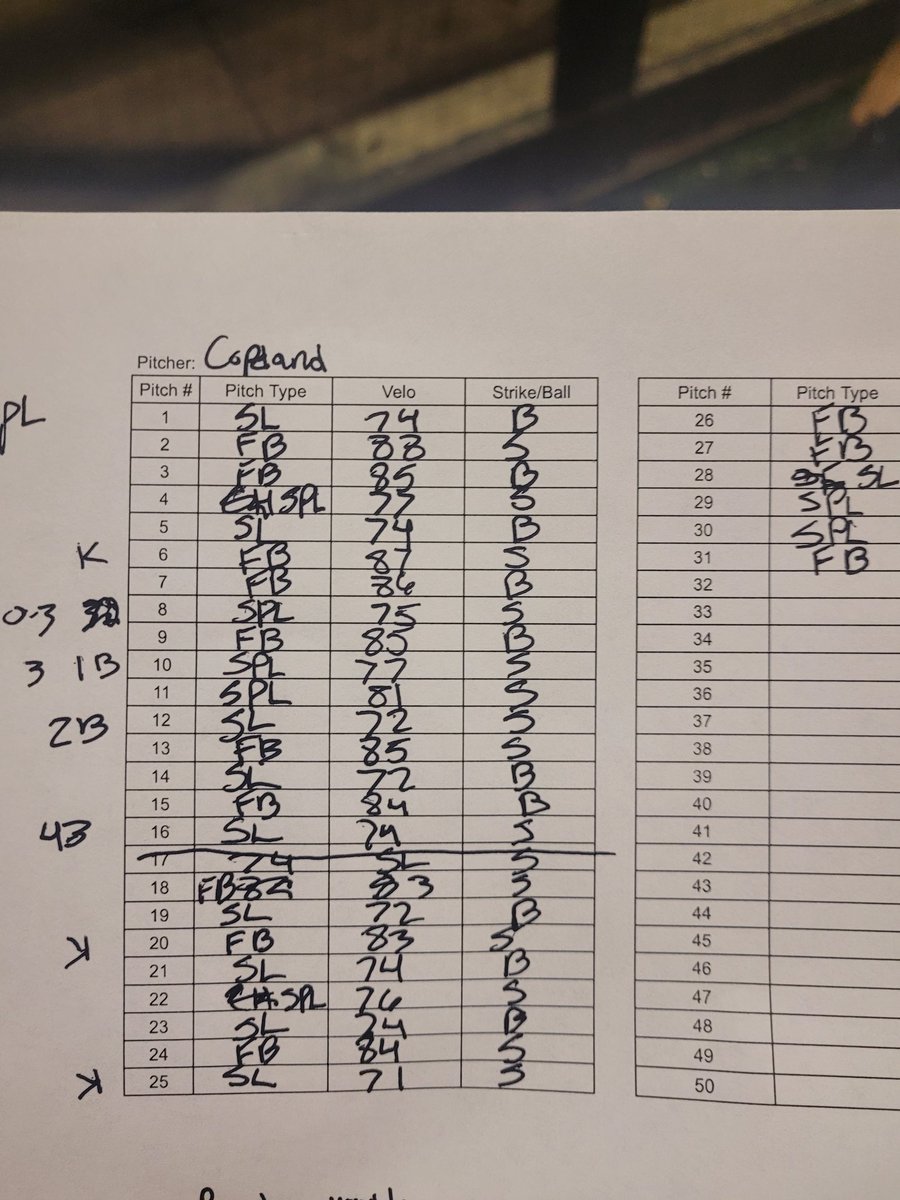 Pitcher: Copeland
Pitch # Pitch Type Velo Strike/Ball Pitch # Pitch Type
PL 1 SL 74 B 26 FB
2 FB 88 S 27 FB
3 FB 85 B 28 SL
4 SPL 77 S 29 SPL
5 SL 74 B 30 SPL
K 6 FB 87 S 31 FB
7 FB 86 B 32
0-3 8 SPL 75 S 33
9 FB 85 B 34
3 1B 10 SPL 77 S 35
11 SPL 81 S 36
2B 12 SL 72 S 37
13 FB 85 S 38
14 SL 72 B 39
15 FB 84 B 40
43 16 SL 74 S 41
17 74 SL S 42
18 FB 83 S 43
19 SL 72 B 44
K 20 FB 83 S 45
21 SL 74 B 46
22 SPL 76 S 47
23 SL 74 B 48
24 FB 84 S 49
K 25 SL 71 S 50